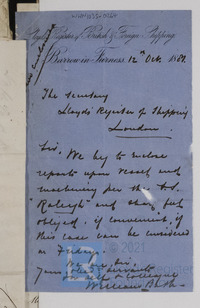 Lloyd's Register of British & Foreign Shipping
Barrow in Furness, 12th Oct. 1881.
The Secretary
Lloyds Register of Shipping
London.
Sir,
We beg to enclose
reports upon vessel and
machinery per the S.S.
Raleigh and shall feel
obliged, if convenient, if
this case can be considered
on Friday.
We are, Sir,
Your obedt servants
& Colleague
William Bath
2021